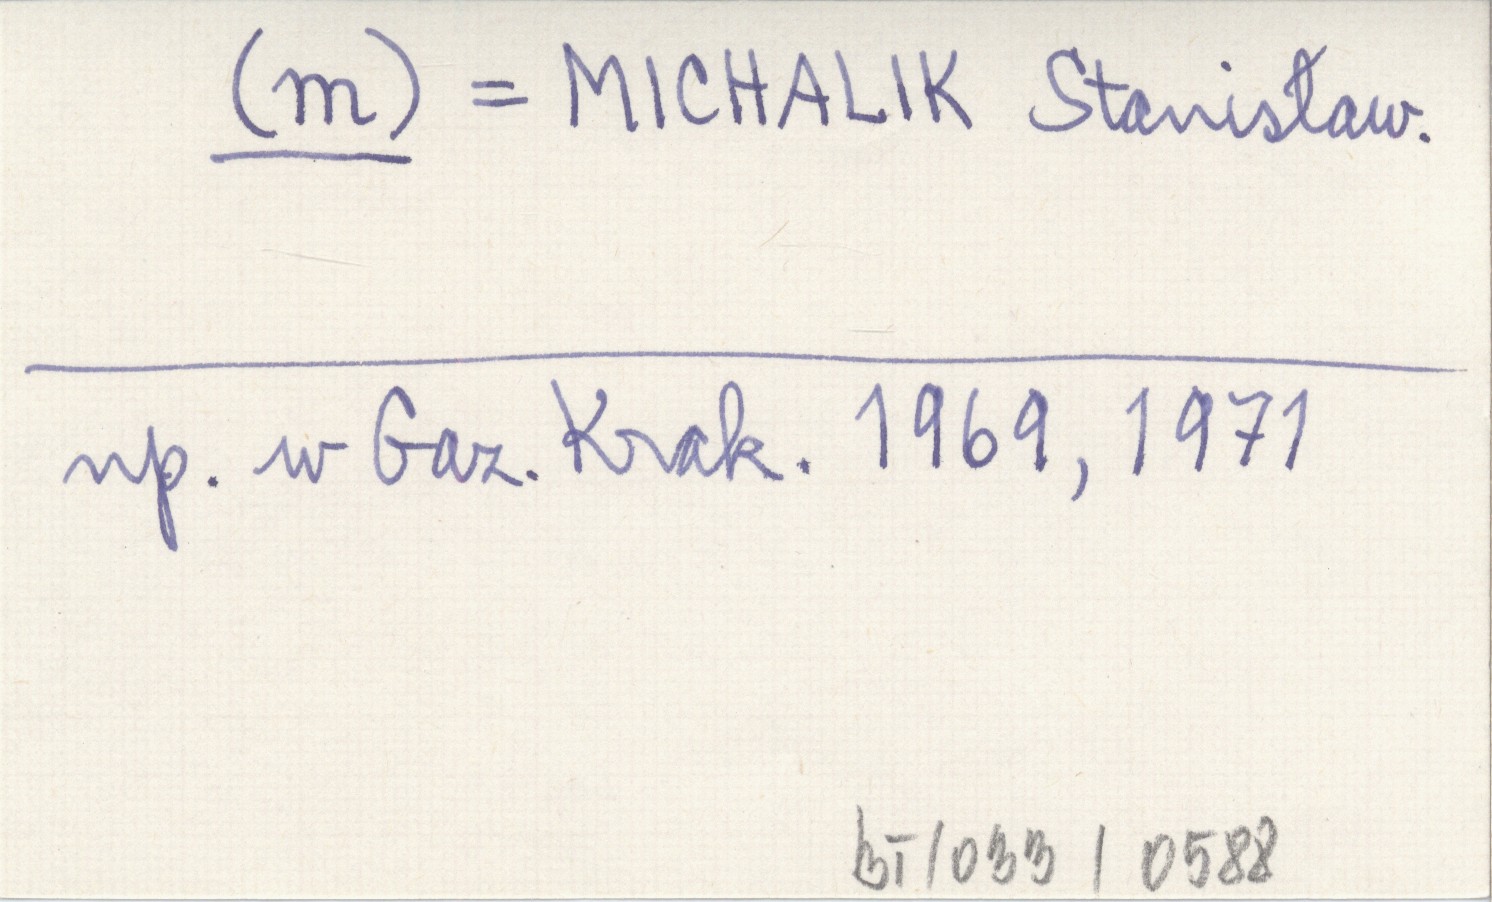 (m) = MICHALIK Stanisław.
np. w Gaz. Krak. 1969, 1971
bī/033/0588